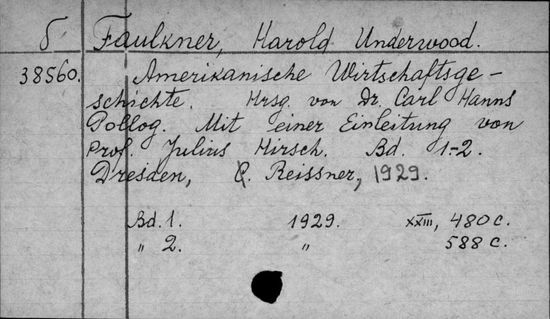 б Faulkner, Harold Underwood.
38560. Amerikanische Wirtschaftsge-
schichte. Hrsg. von Dr. Carl Hanns
Pollog. Mit einer Einleitung von
Prof. Julius Hirsch. Bd. 1-2.
Dresden, C. Reissner, 1929.
Bd. 1. 1929. XXIII, 480 c.
„ 2. „ 588 c.